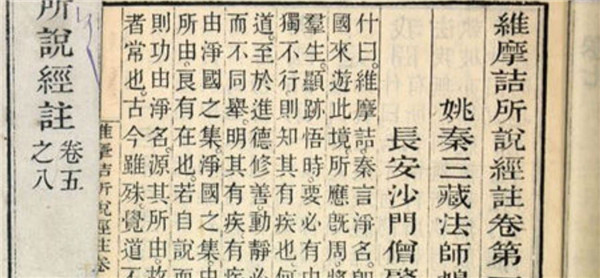 維摩詰所說經註卷第
姚秦三藏法師鳩
長安沙門僧肇
什曰。維摩詰。秦言淨名。卽
國來遊此境。所應旣周。將
羣生。顯跡悟時。要必有由
獨不行。則知其有疾有
道。至於進德修善。動靜必
而不同舉。明其有疾有何
由淨國之集。淨國之集。由
所由。良有在也。若自說而
則功由淨名。源其所由。故
者常也。古今雖殊。覺道不
維摩詰所說經註卷
所說經註
卷五之八